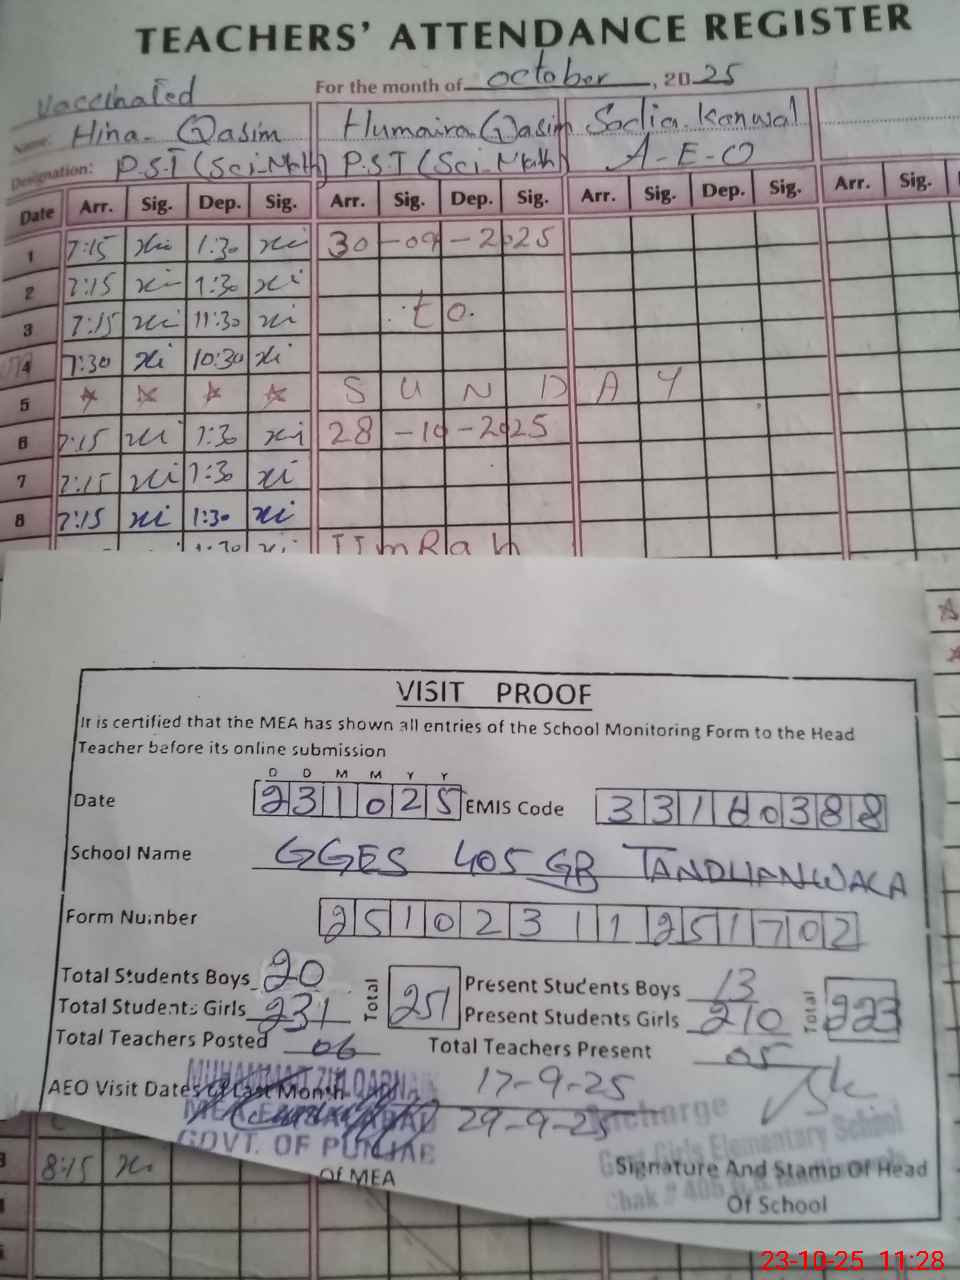 TEACHERS' ATTENDANCE REGISTER
For the month of October, 2025
Vaccinated
Name: Hina Qasim Humaira Qasim Sadia Kanwal
Designation: P.S.T (Sci-Math) P.S.T (Sci-Math) A-E-O
Date Arr. Sig. Dep. Sig. Arr. Sig. Dep. Sig. Arr. Sig. Dep. Sig. Arr. Sig.
1 7:15 1:30 30-09-2025
2 7:15 1:30
3 7:15 11:30 to
4 7:30 10:30
5 SUNDAY
6 7:15 1:30 28-10-2025
7 7:15 1:30
8 7:15 1:30
UmRah
VISIT PROOF
It is certified that the MEA has shown all entries of the School Monitoring Form to the Head
Teacher before its online submission
D D M M Y Y
Date 231025 EMIS Code 33160388
School Name GGES 405 GB TANDLIANWALA
Form Number 25102311251702
Total Students Boys 20 Total 251 Present Students Boys 13 Total 223
Total Students Girls 231 Present Students Girls 210
Total Teachers Posted 06 Total Teachers Present 05
AEO Visit Dates Of Last Month 17-9-25
29-9-25
GOVT. OF PUNJAB
Incharge
Govt Girls Elementary School
Chak # 405
Of MEA
Signature And Stamp Of Head
Of School
8:15
23-10-25 11:28